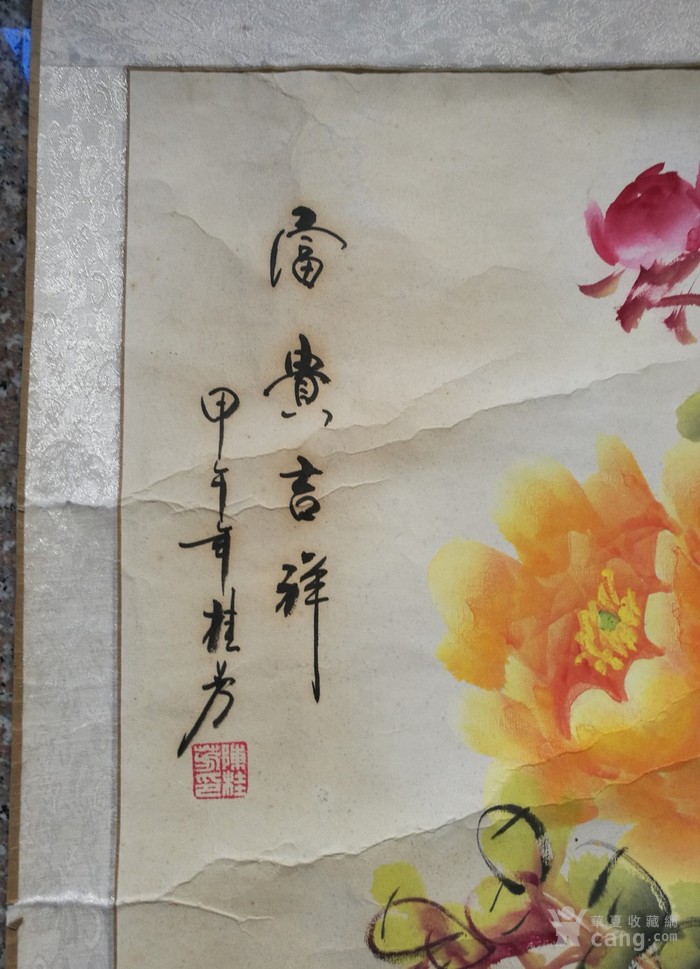 富貴吉祥
甲午年桂芳
陳桂芳印
華夏收藏網
cang.com